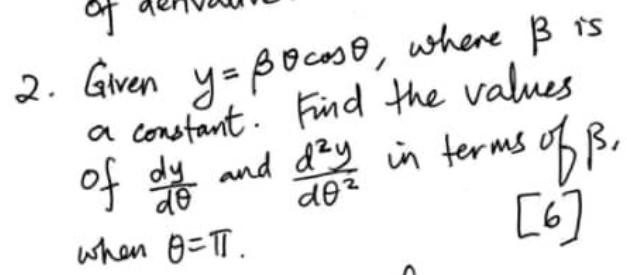 of
2. Given y = βθcosθ, where β is
a constant. Find the values
of dy/dθ and d²y/dθ² in terms of β,
when θ=π.
[6]